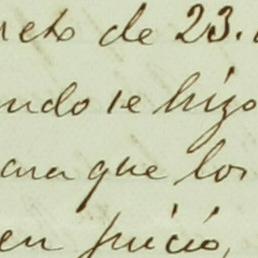 reto de 23.
ndo se hizo
ara que los
en juicio,